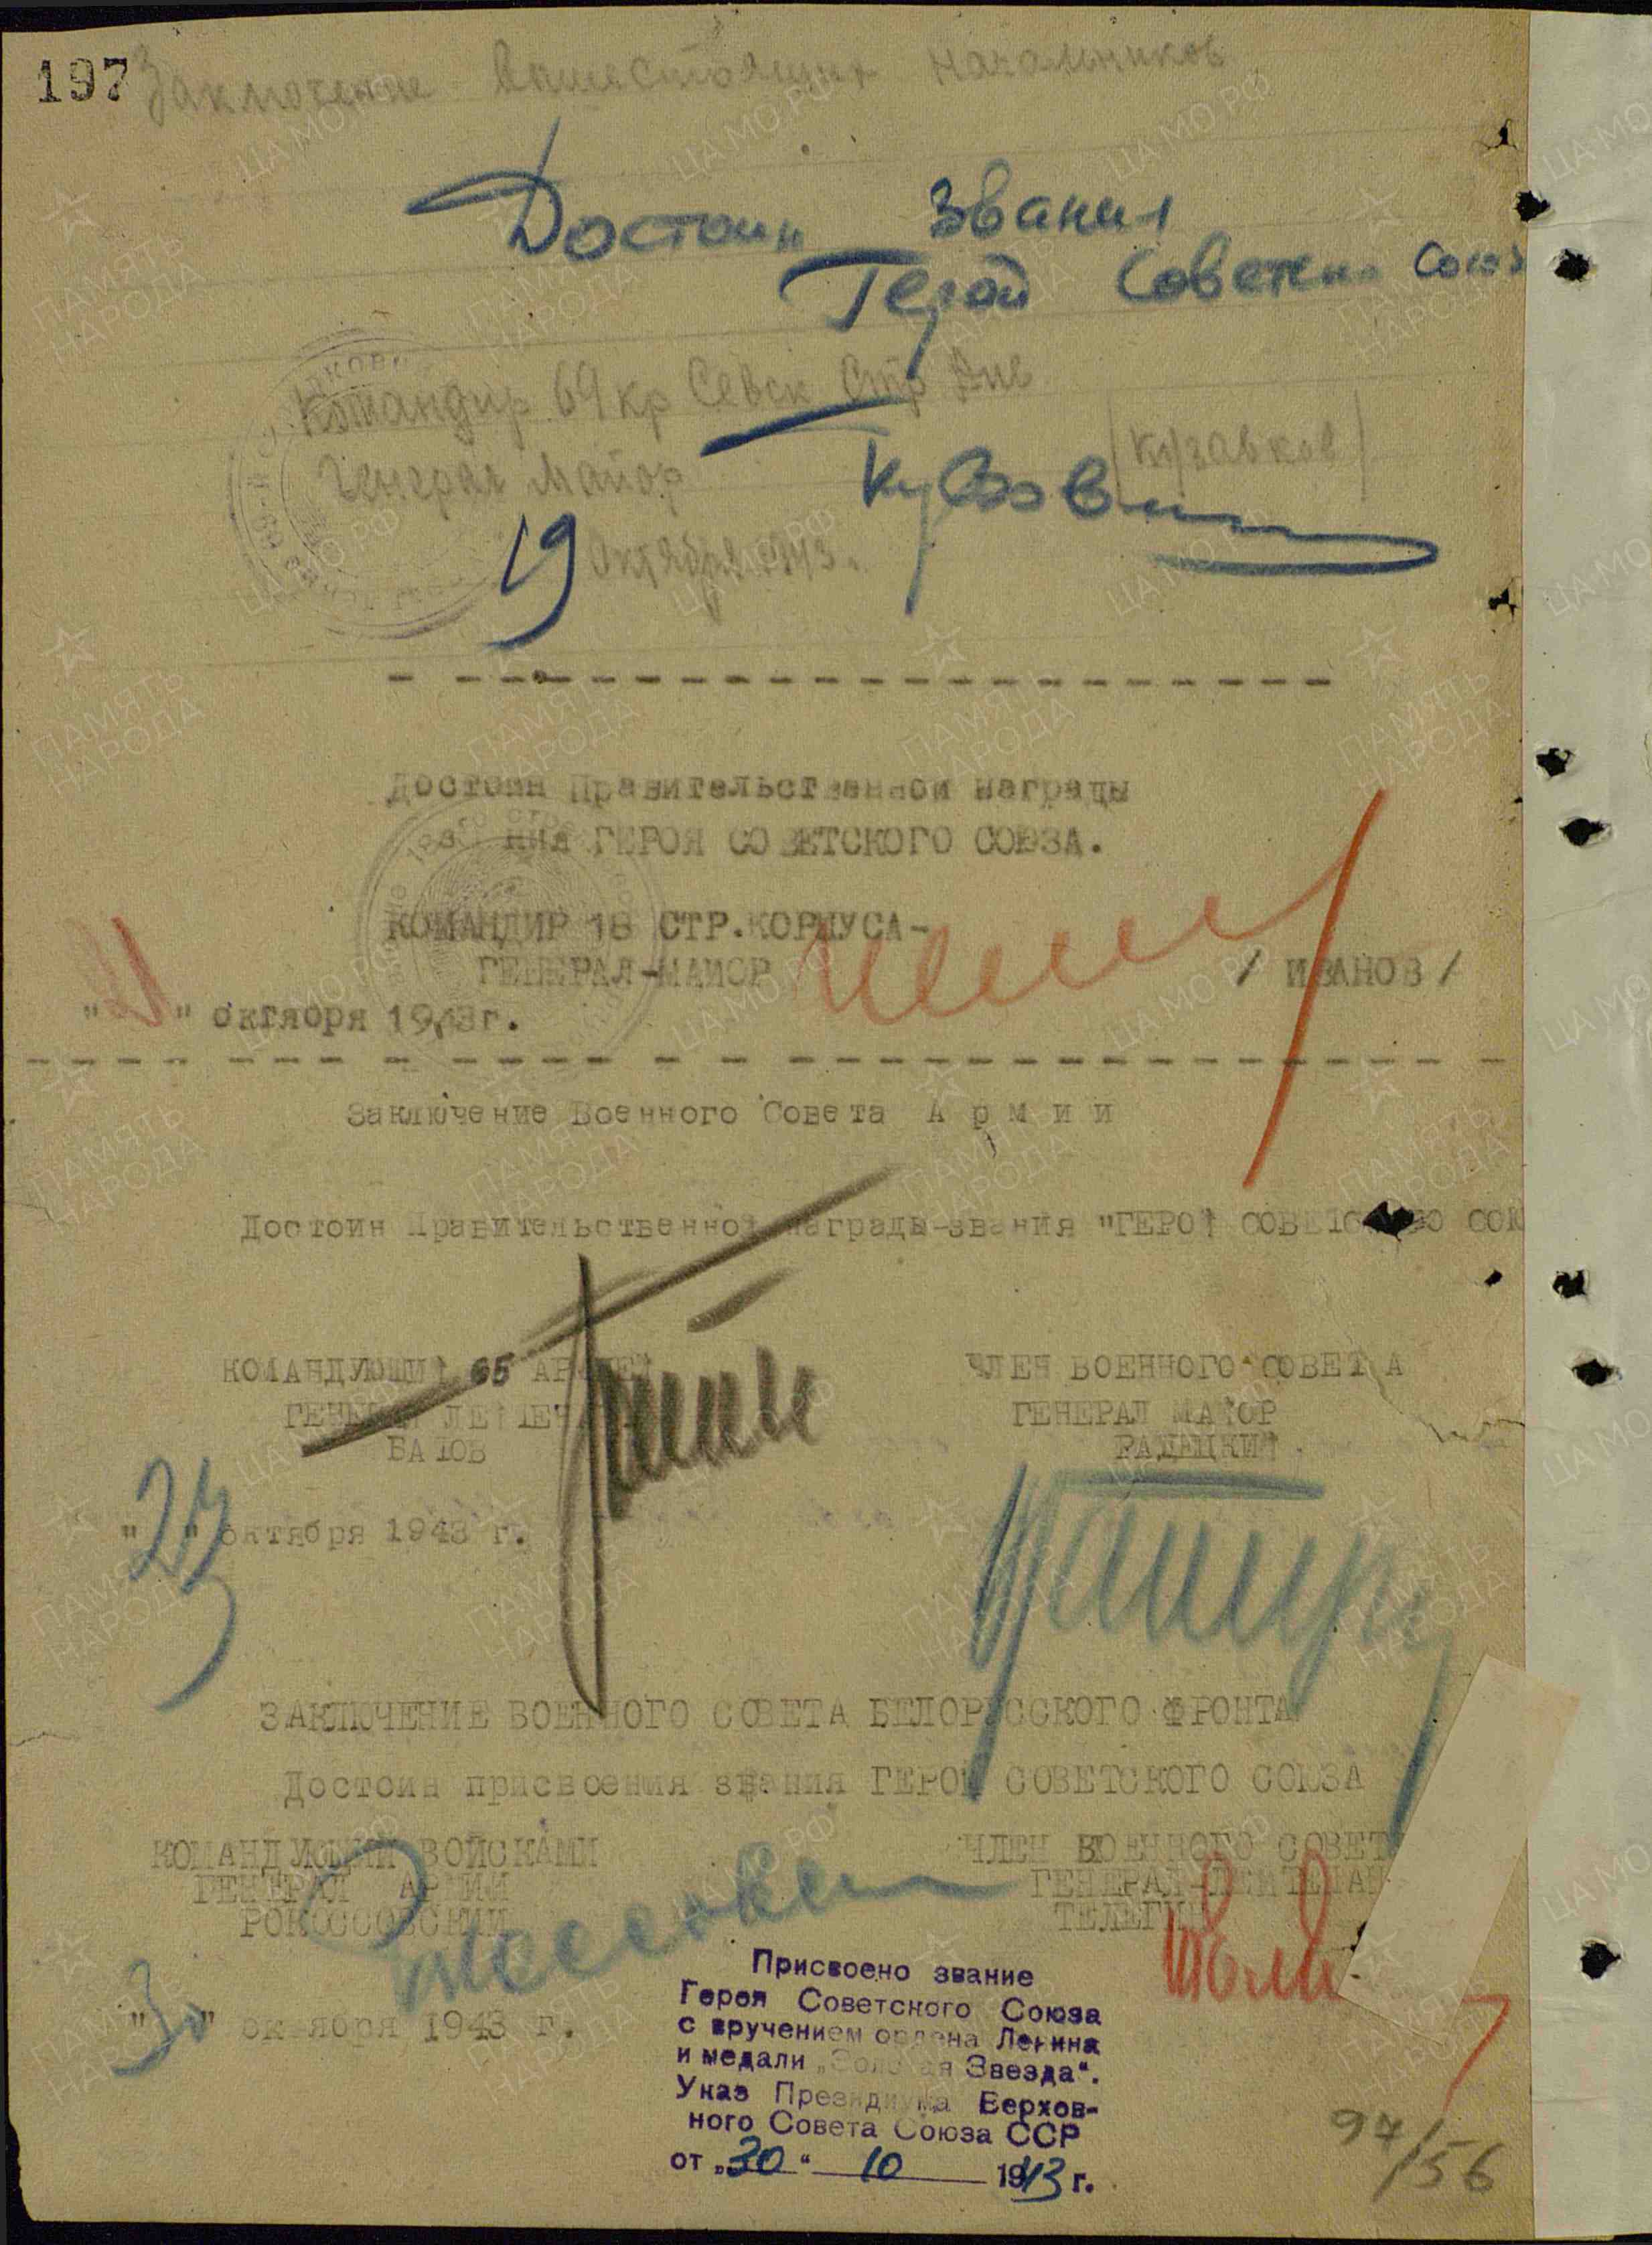 197
Заключение вышестоящих начальников
Достоин звания
Герой Советск Союз
Командир 69 кр Севск Стр Див
Генерал Майор /Кузовков/
19 октября 1943 г.
Достоин Правительственной награды
ния ГЕРОЯ СОВЕТСКОГО СОЮЗА.
КОМАНДИР 18 СТР.КОРПУСА-
ГЕНЕРАЛ-МАЙОР / ИВАНОВ /
"21" октября 1943г.
Заключение Военного Совета Армии
Достоин Правительственной награды-звания "ГЕРОЙ СОВЕТСКОГО СОЮ
КОМАНДУЮЩИЙ 65 АРМИЕЙ ЧЛЕН ВОЕННОГО СОВЕТА
ГЕНЕРАЛ ЛЕЙТЕНАНТ ГЕНЕРАЛ МАЙОР
БАТОВ РАДЕЦКИЙ.
"23" октября 1943 г.
ЗАКЛЮЧЕНИЕ ВОЕННОГО СОВЕТА БЕЛОРУССКОГО ФРОНТА
Достоин присвоения звания ГЕРОЙ СОВЕТСКОГО СОЮЗА
КОМАНДУЮЩИЙ ВОЙСКАМИ ЧЛЕН ВОЕННОГО СОВЕТ
ГЕНЕРАЛ АРМИИ ГЕНЕРАЛ-ЛЕЙТЕНАН
РОКОССОВСКИЙ ТЕЛЕГИН
"30" октября 1943 г.
Присвоено звание
Героя Советского Союза
с вручением ордена Ленина
и медали „Золотая Звезда“.
Указ Президиума Верхов-
ного Совета Союза ССР
от „30“ 10 1943 г.
97/56